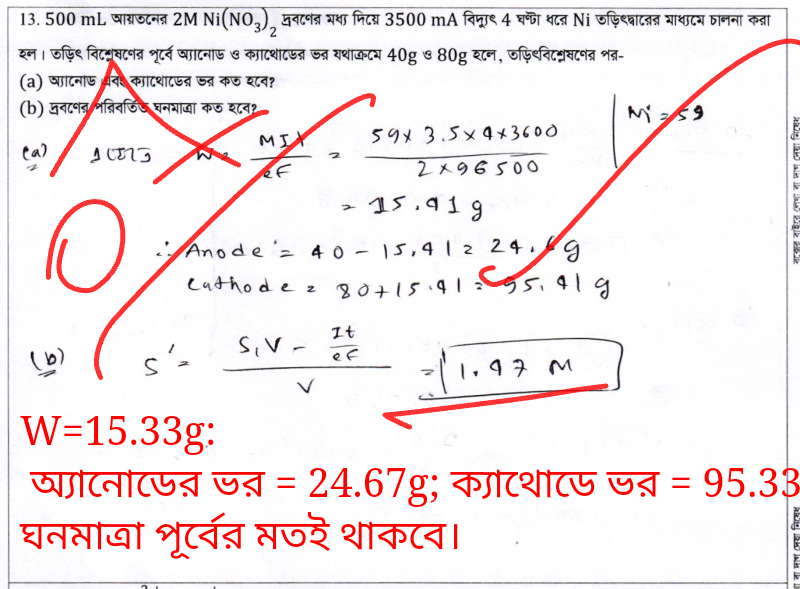 13. 500 mL আয়তনের 2M Ni(NO3)2 দ্রবণের মধ্য দিয়ে 3500 mA বিদ্যুৎ 4 ঘণ্টা ধরে Ni তড়িৎদ্বারের মাধ্যমে চালনা করা
হল। তড়িৎ বিশ্লেষণের পূর্বে অ্যানোড ও ক্যাথোডের ভর যথাক্রমে 40g ও 80g হলে, তড়িৎবিশ্লেষণের পর-
(a) অ্যানোড এবং ক্যাথোডের ভর কত হবে?
(b) দ্রবণের পরিবর্তিত ঘনমাত্রা কত হবে?
(a) W = MIt/eF = 59 x 3.5 x 4 x 3600 / 2 x 96500
Ni = 59
= 15.41 g
∴ Anode = 40 - 15.41 = 24.6 g
Cathode = 80 + 15.41 = 95.41 g
(b) S' = S1V - It/eF / V = 1.47 M
W=15.33g:
অ্যানোডের ভর = 24.67g; ক্যাথোডে ভর = 95.33
ঘনমাত্রা পূর্বের মতই থাকবে।